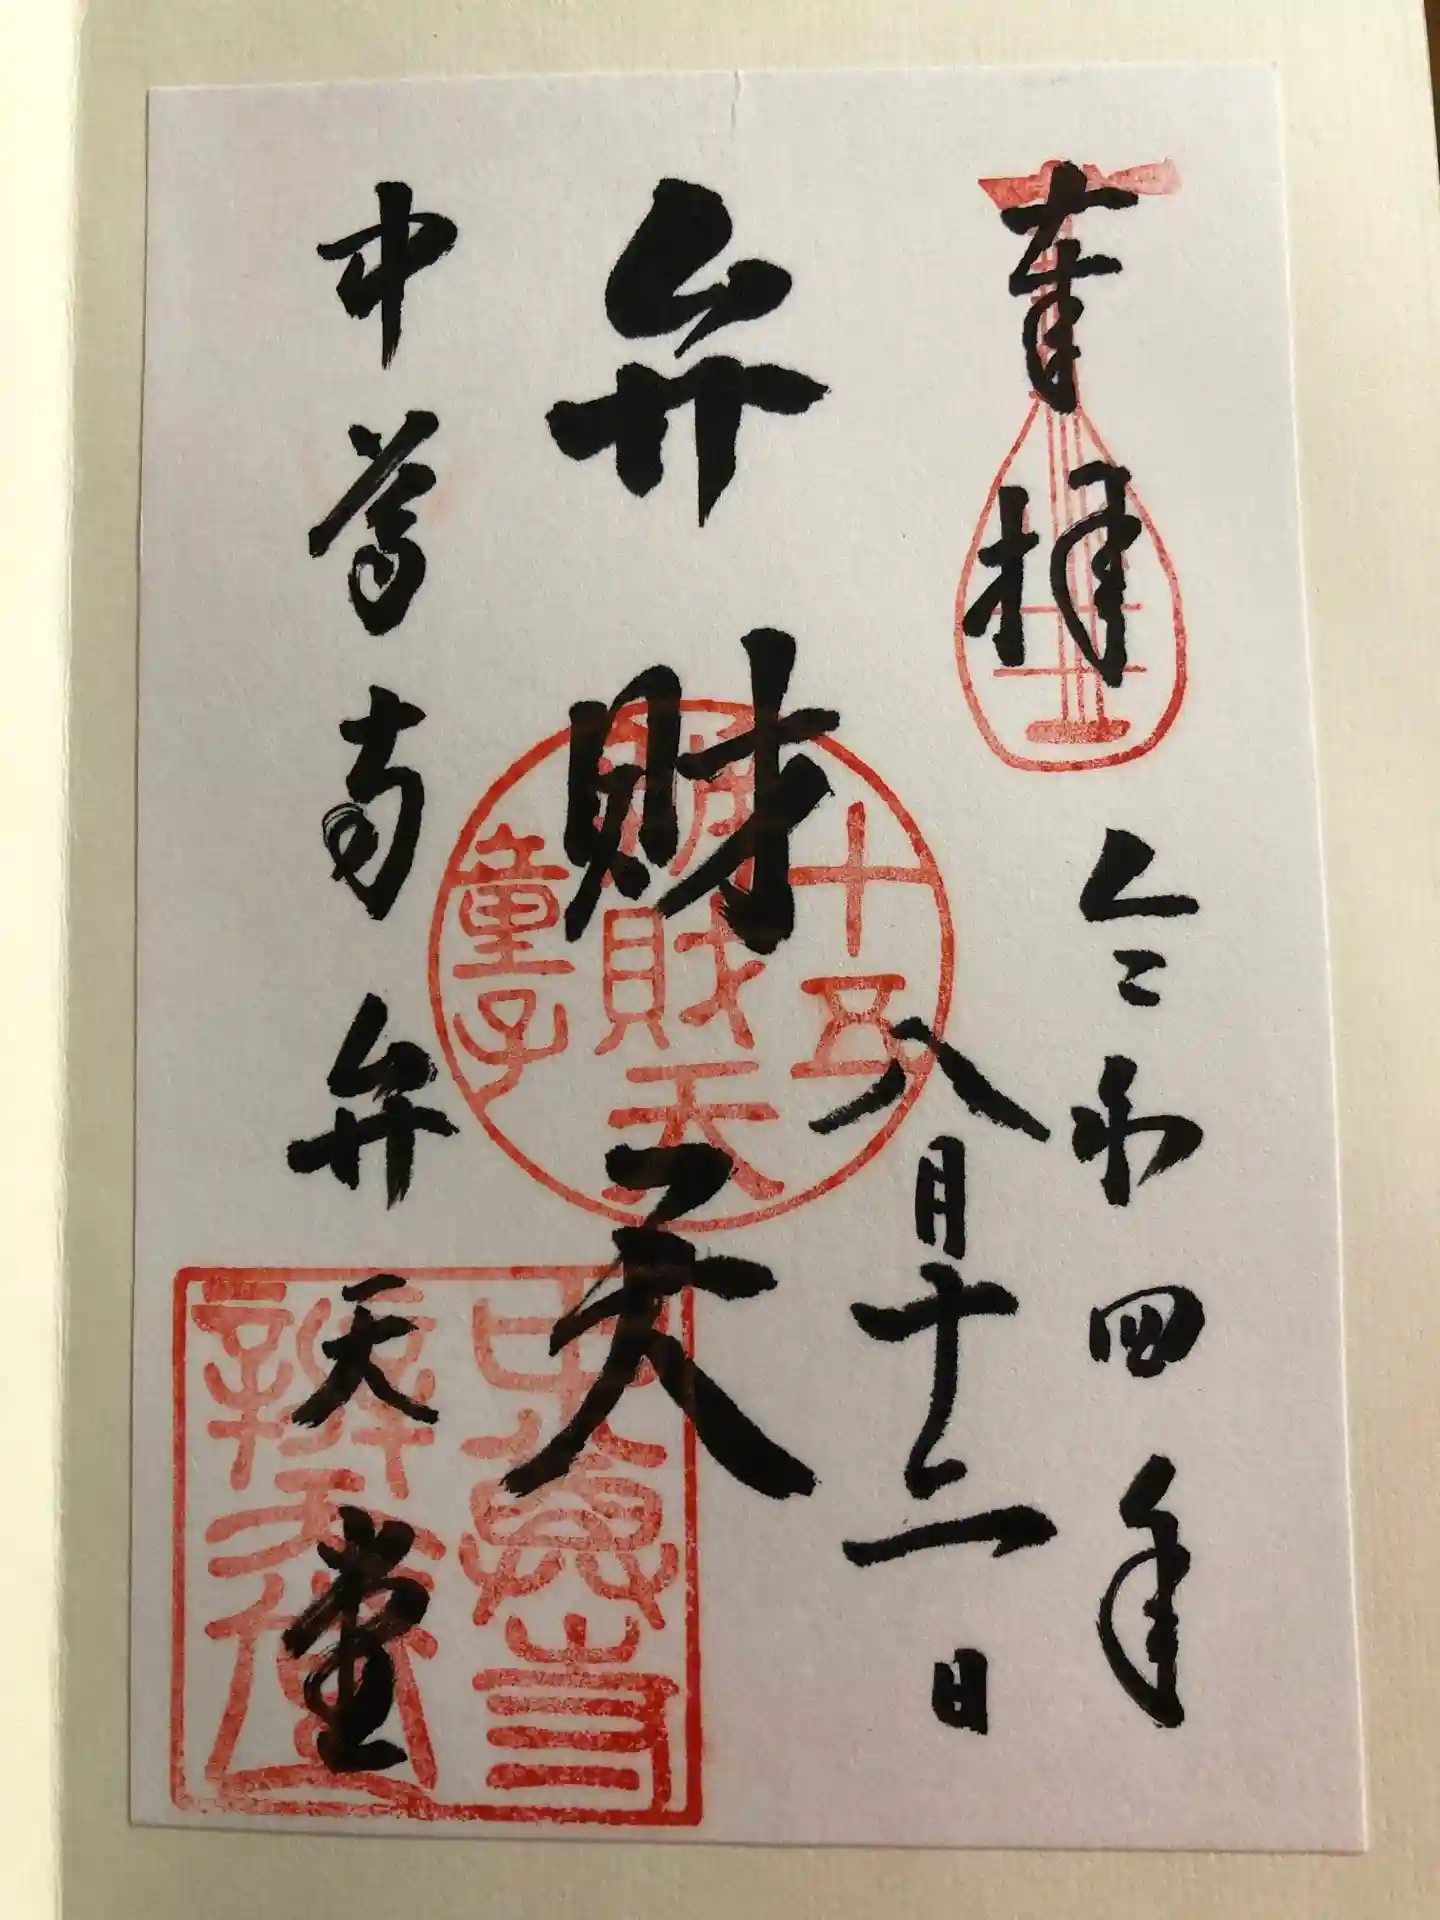 奉拝
令和四年
八月十二日
弁財天
中尊寺弁天堂
十五
辨財天
童子
中尊寺
辨天堂